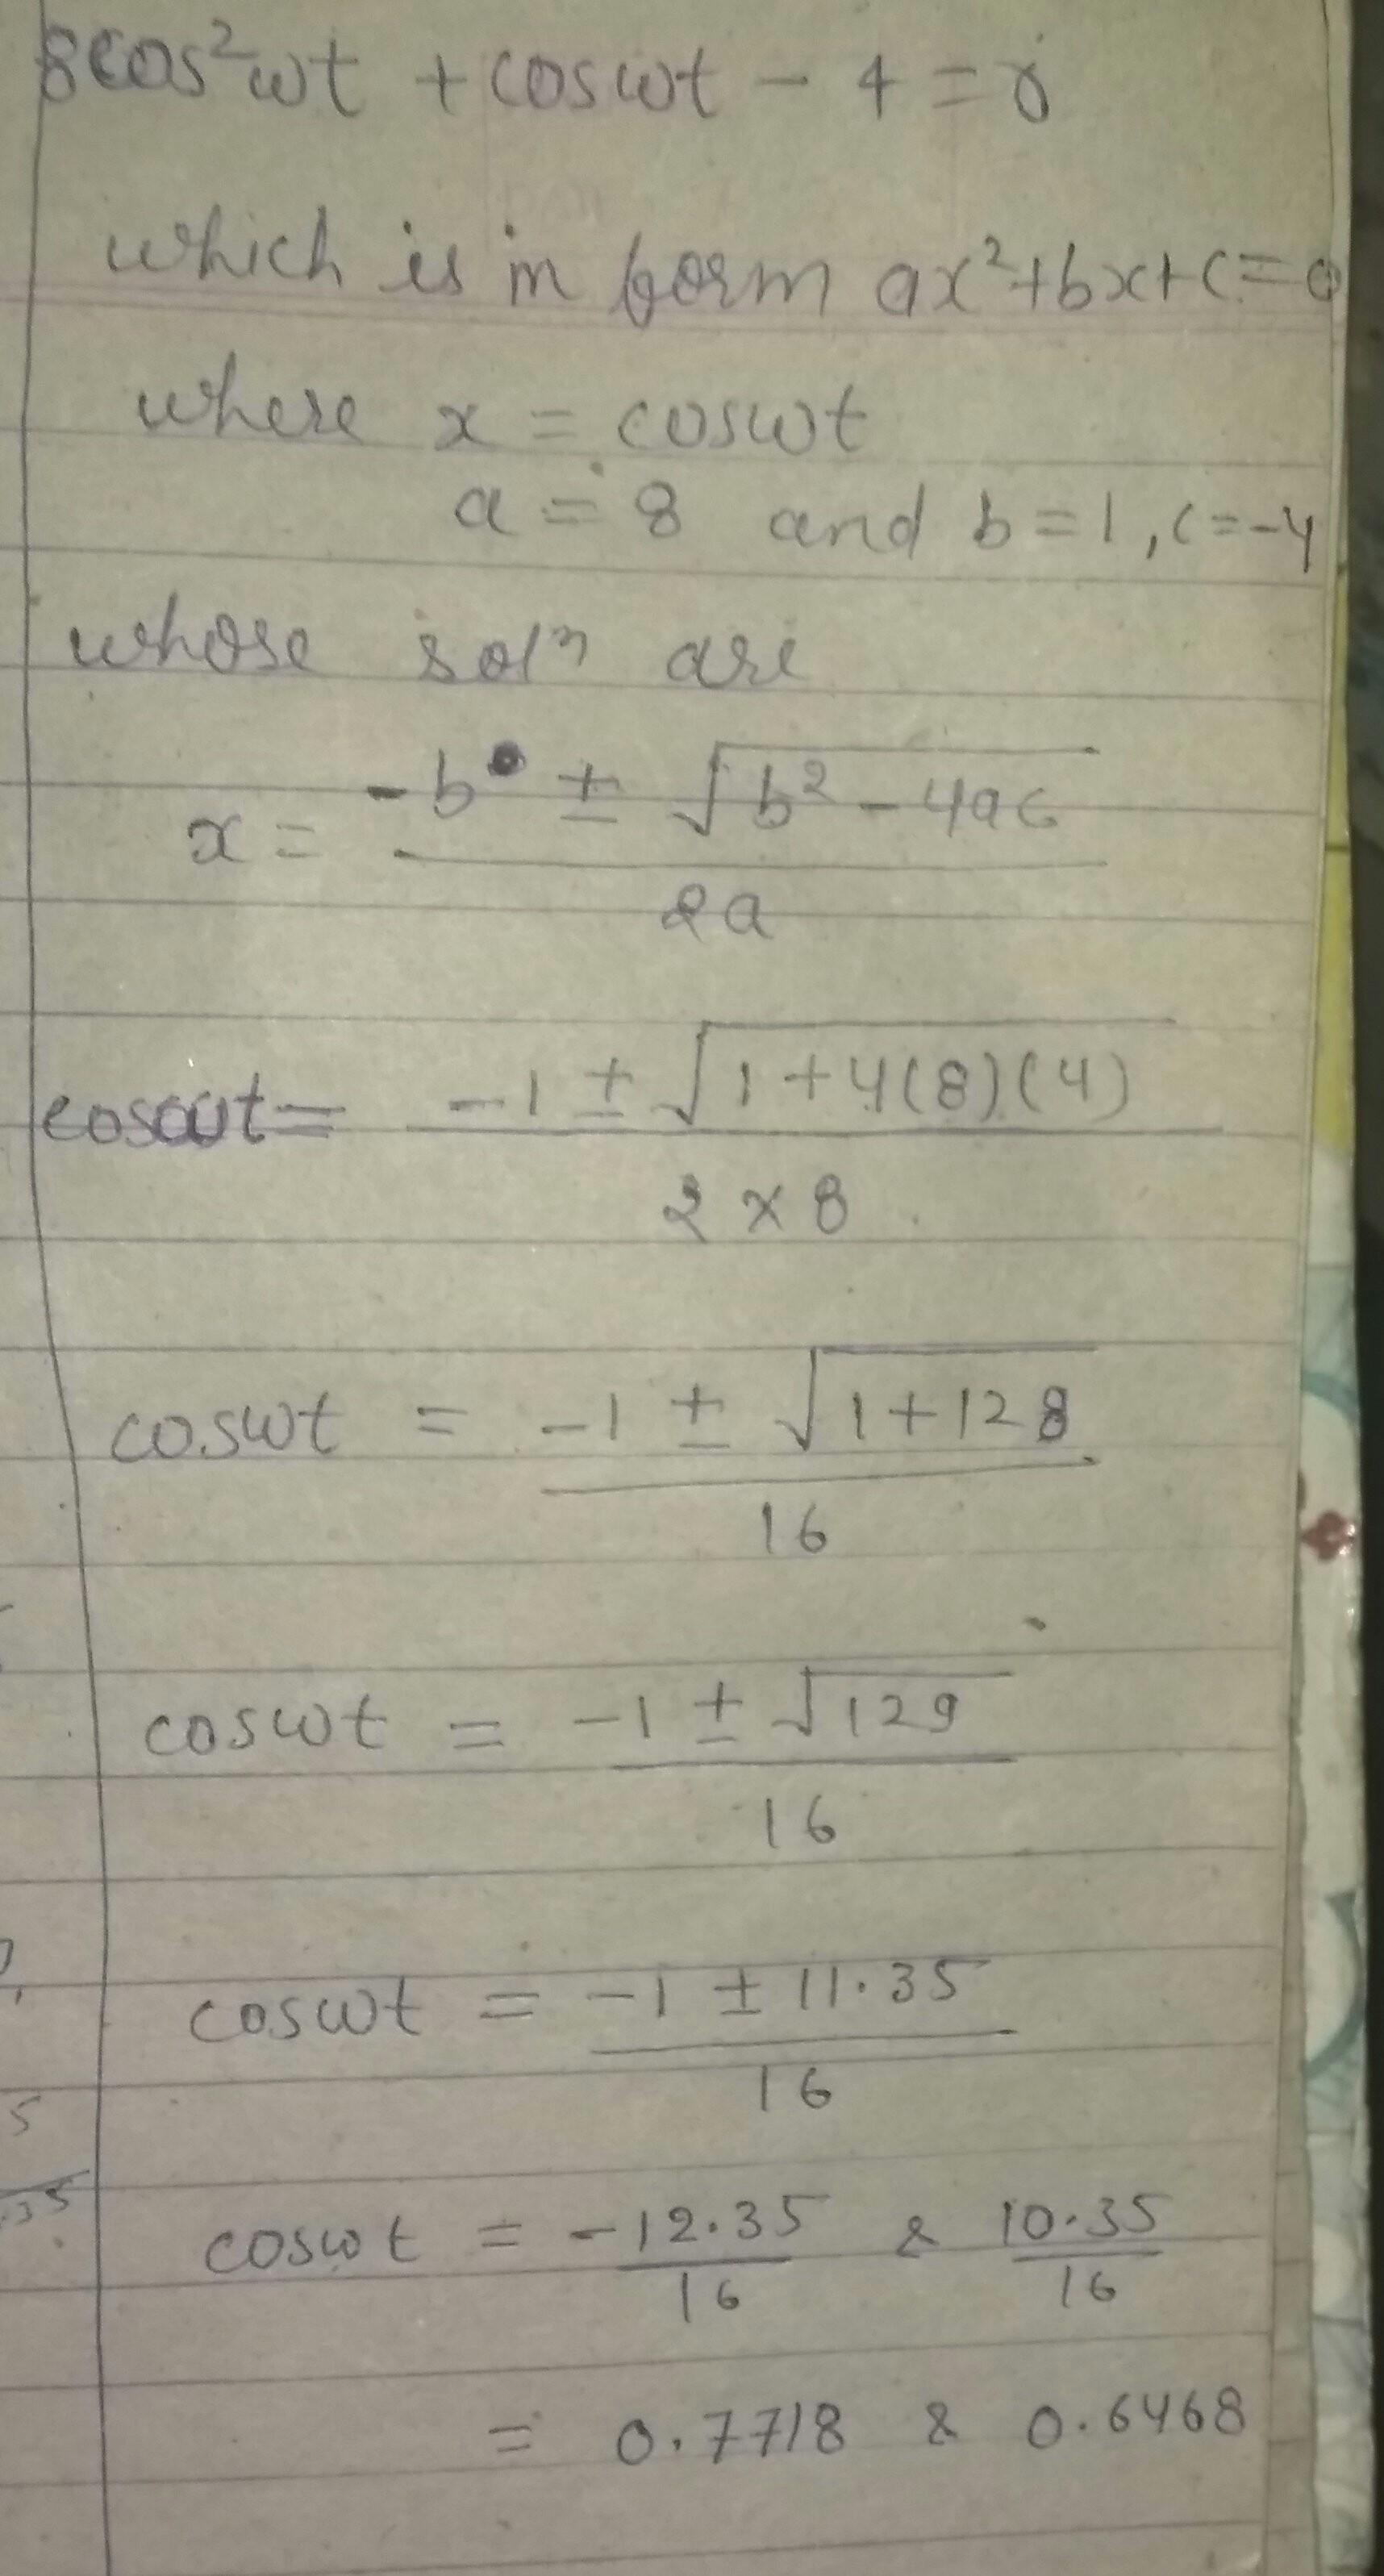 8cos²ωt + cosωt - 4 = 0
which is in form ax²+bx+c=0
where x = cosωt
a = 8 and b = 1, c=-4
whose solⁿ are
x = (-b ± √(b² - 4ac)) / 2a
cosωt = (-1 ± √(1+4(8)(4))) / 2 × 8
cosωt = (-1 ± √(1+128)) / 16
cosωt = (-1 ± √129) / 16
cosωt = (-1 ± 11.35) / 16
cosωt = -12.35/16 & 10.35/16
= 0.7718 & 0.6468